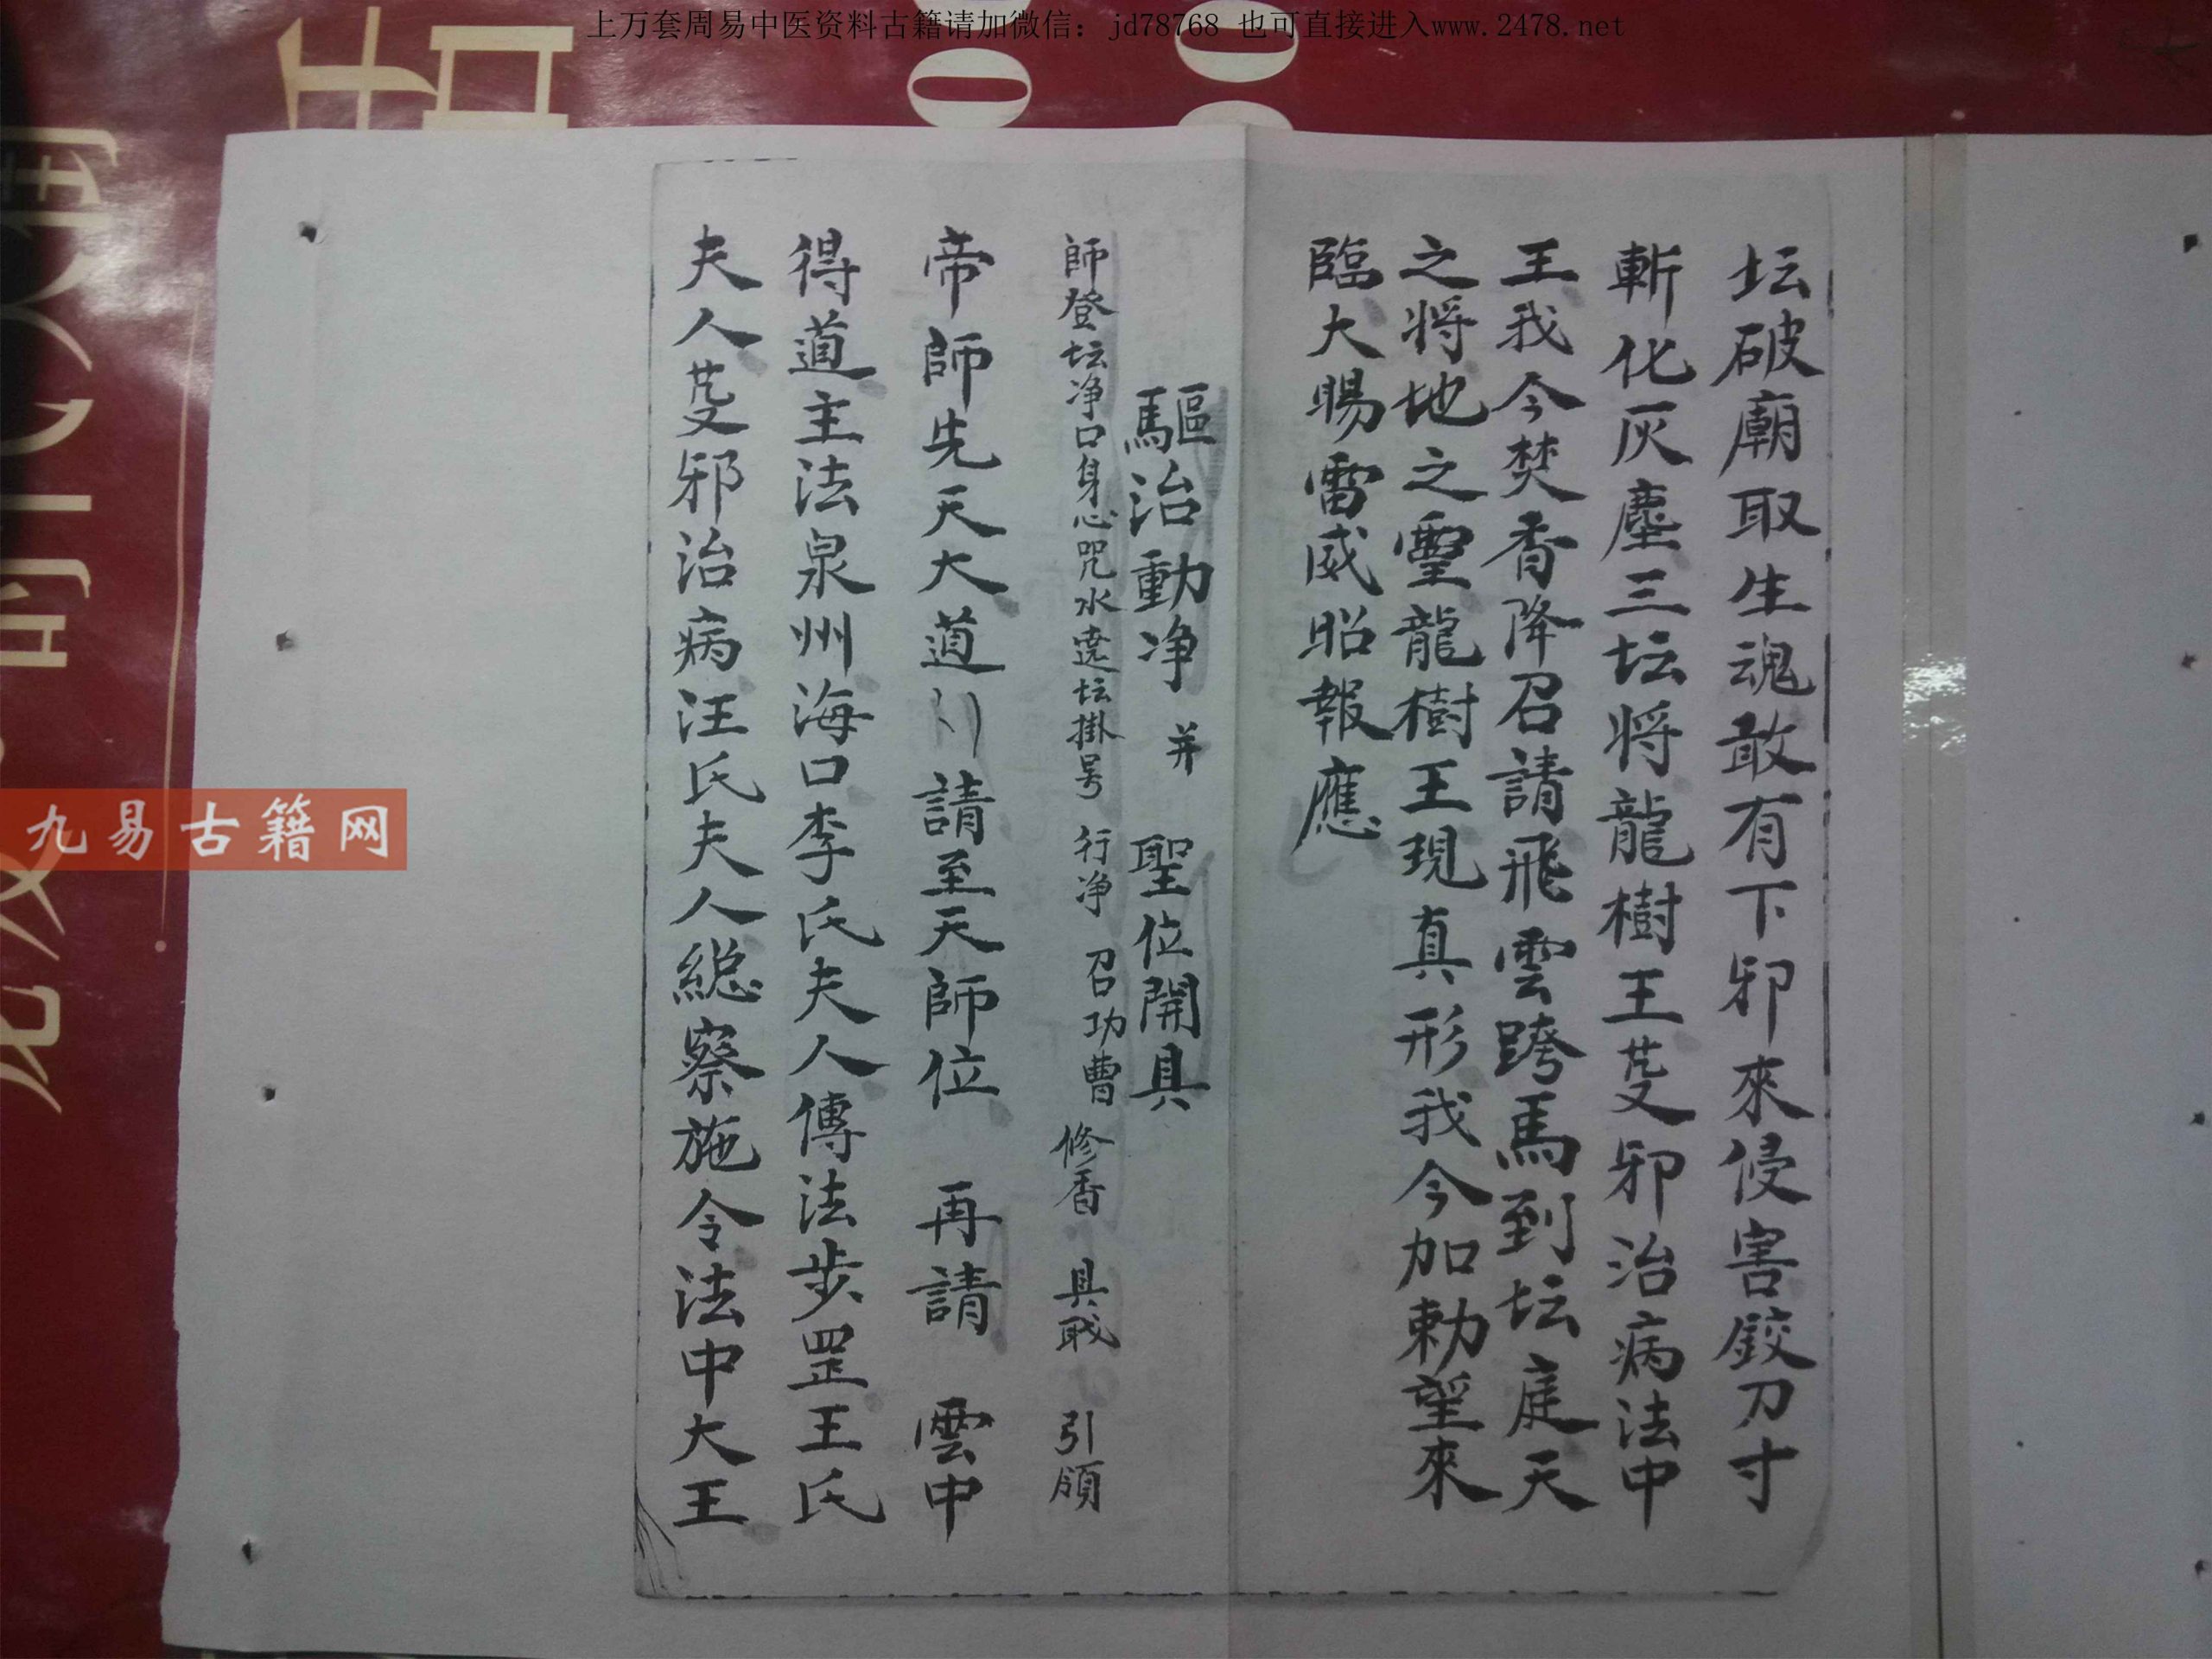 上万套周易中医资料古籍请加微信：jd78768 也可直接进入www.2478.net
坛破廟取生魂敢有下邪來侵害鉸刀寸
斬化灰塵三坛将龍樹王芟邪治病法中
王我今焚香降召請飛雲跨馬到坛庭天
之将地之靈龍樹王現真形我今加勅望來
臨大賜雷威昭報應
驅治動净 并 聖位開具
師登坛净口身心咒水遶坛掛号 行净 召功曹 修香 具 引領
帝師先天大道 請至天師位 再請 雲中
得道主法泉州海口李氏夫人傳法步罡王氏
夫人芟邪治病汪氏夫人総察施令法中大王
九易古籍网